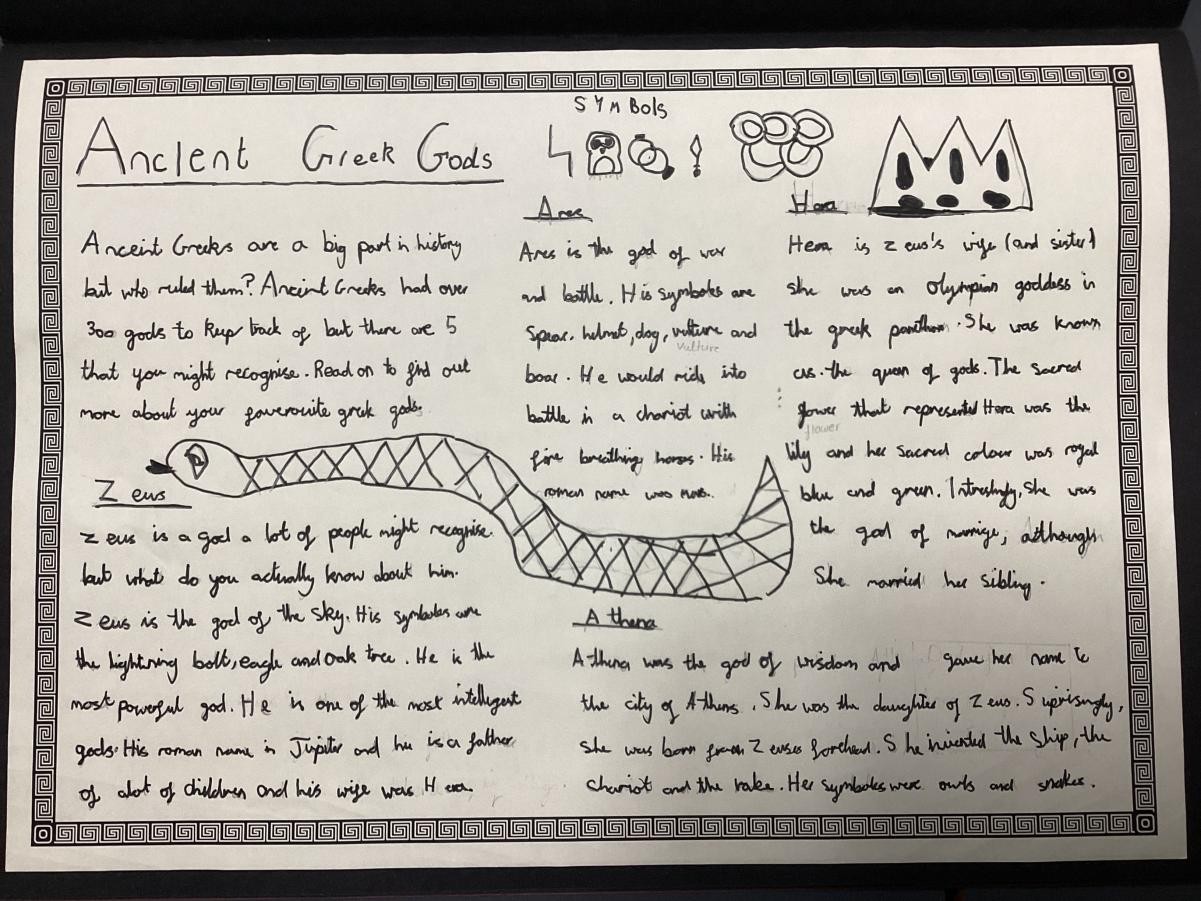 Ancient Greek Gods
Anceint Greeks are a big part in history
but who ruled them? Anceint Greeks had over
300 gods to keep track of but there are 5
that you might recognise. Read on to find out
more about your faverouite greek gods.
Zeus
Zeus is a god a lot of people might recognise.
but what do you actually know about him.
Zeus is the god of the sky. His symboles are
the lightning bolt, eagle and oak tree. He is the
most powerful god. He is one of the most intelligent
gods. His roman name is Jupiter and he is a father
of alot of children and his wife was Hera.
SYMBols
Ares
Ares is the god of war
and battle. His symboles are
Spear. helmet, dog, vulture and
vulture
boar. He would ride into
battle in a chariot with
fire breathing horses. His
roman name was mars.
Hera
Hera is Zeus's wife (and sister)
she was an Olympian goddess in
the greek pantheon. She was known
as. the queen of gods. The sacred
flower that represented Hera was the
flower
lily and her sacred colour was royal
blue and green. Intrestingly, she was
the god of marrige, although
She married her sibling.
Athena
Athena was the god of wisdom and gave her name to
the city of Athens. She was the daughter of Zeus. Suprisingly,
she was born from Zeuses forehead. She invented the ship, the
chariot and the rake. Her symboles were owls and snakes.